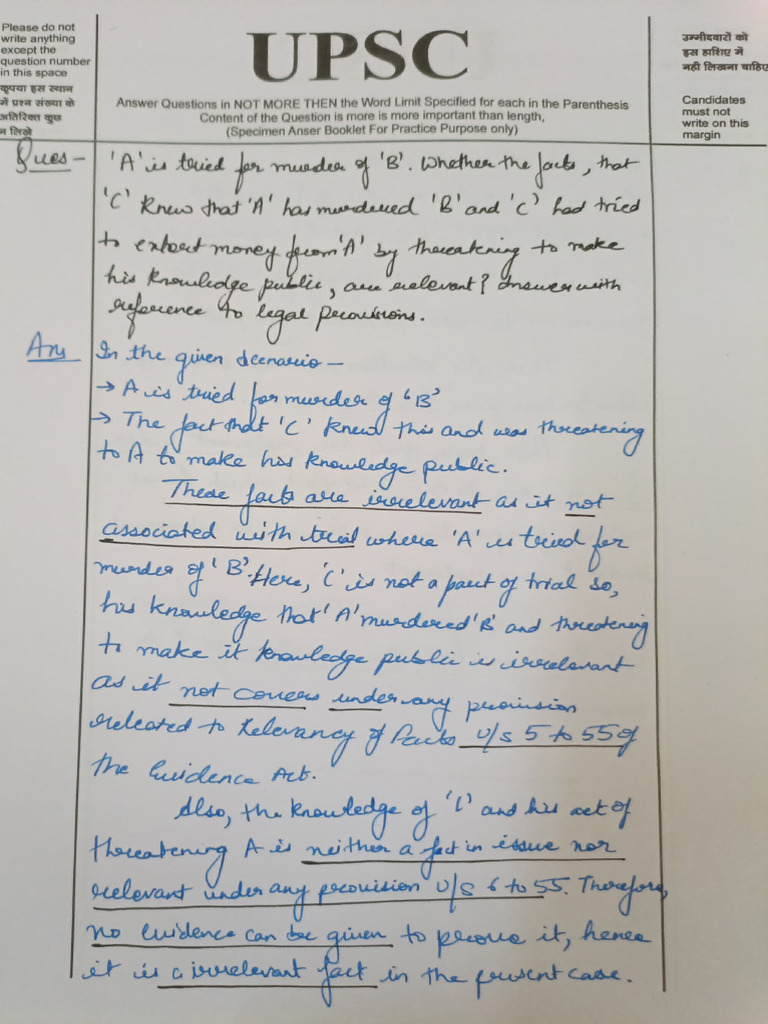 Please do not
write anything
except the
question number
in this space
कृपया इस स्थान
में प्रश्न संख्या के
अतिरिक्त कुछ
न लिखें
UPSC
Answer Questions in NOT MORE THEN the Word Limit Specified for each in the Parenthesis
Content of the Question is more is more important than length,
(Specimen Anser Booklet For Practice Purpose only)
उम्मीदवारों को
इस हाशिए में
नही लिखना चाहिए
Candidates
must not
write on this
margin
Ques – 'A' is tried for murder of 'B'. Whether the facts, that
'C' knew that 'A' has murdered 'B' and 'C' had tried
to extort money from 'A' by threatening to make
his knowledge public, are relevant? Answer with
reference to legal provisions.
Ans In the given scenario –
→ A is tried for murder of 'B'
→ The fact that 'C' knew this and was threatening
to A to make his knowledge public.
These facts are irrelevant as it not
associated with trial where 'A' is tried for
murder of 'B'. Here, 'C' is not a part of trial so,
his knowledge that 'A' murdered 'B' and threatening
to make it knowledge public is irrelevant
as it not covers under any provision
related to Relevancy of Facts U/S 5 to 55 of
the Evidence Act.
Also, the knowledge of 'C' and his act of
threatening A is neither a fact in issue nor
relevant under any provision U/S 6 to 55. Therefore,
no evidence can be given to prove it, hence
it is a irrelevant fact in the present case.